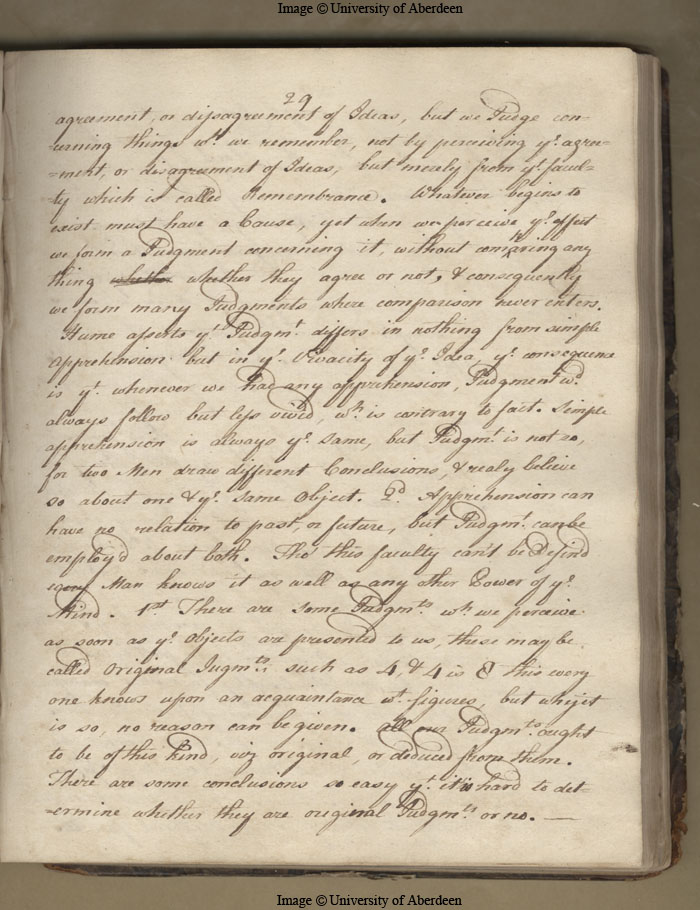 Image © University of Aberdeen
29
agreement, or dissagreement of Ideas, but we Judge con-
-cerning things wh. we remember, not by perceiving ye. agree-
-ment, or disagreement of Ideas, but mearly from yt. facul-
-ty which is called Remembrance. Whatever begins to
exist must have a Cause, yet when we perceive ye. effect
we form a Judgment concerning it, without comparing any
thing whether whether they agree or not, & consequently
we form many Judgments where comparison never enters.
Hume asserts yt. Judgmt. differs in nothing from simple
apprehension but in ye. Vivacity of ye. Idea, ye. consequence
is yt. whenever we had any apprehension, Judgment wd.
always follow but less vivid, wh. is contrary to fact. Simple
apprehension is always ye. same, but Judgmt. is not so,
for two Men draw different Conclusions, & realy believe
so about one & ye. same Object. 2d. Apprehension can
have no relation to past or future, but Judgmt. can be
employ'd about both. Tho' this faculty can't be Defin'd
every Man knows it as well as any other Power of ye.
Mind. 1st There are some Judgmts. wh. we perceive
as soon as ye. Objects are presented to us, these may be
called Original Jugmts. such as 4, & 4 is 8 this every
one knows upon an acquaintance wt. figures, but why it
is so, no reason can be given. All our Judgmts. ought
to be of this kind, viz original, or deduced from them.
There are some conclusions so easy yt. it is hard to det-
-ermine whether they are original Judgmts. or no. —
Image © University of Aberdeen